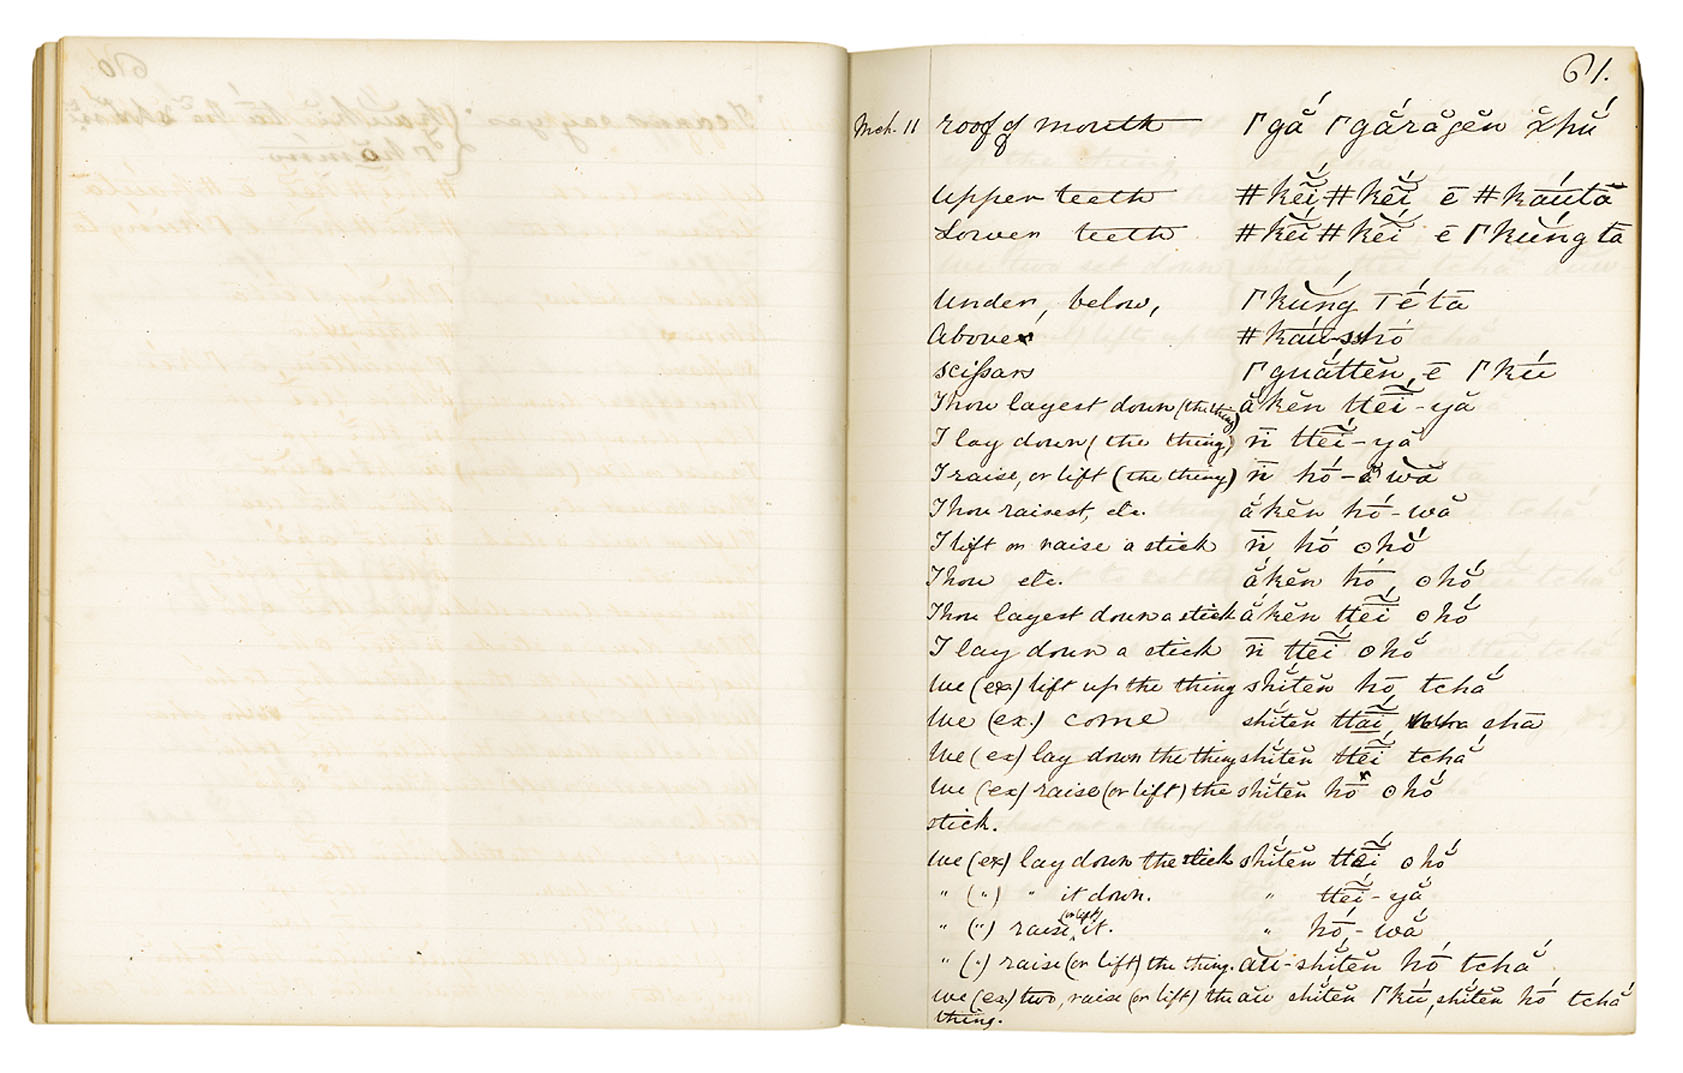 61.
Mch. 11 roof of mouth Γgắ Γgắrăgĕn x̆hŭ́
upper teeth #kĕĭ́#kĕĭ́ ē #kā́utā
Lower teeth #kĕĭ́#kĕĭ́ ē Γkŭ́ng tā
Under, below, Γkŭ́ng Γḗtā
Above #kā́u-sshō
scissars Γguắttĕn, ē Γkū́
Thou layest down (the thing) ắkĕn ttĕĭ́-yă
I lay down (the thing) n̄ ttĕĭ́-yă
I raise, or lift (the thing) n̄ hṓ-wă
Thou raisest, etc. ắkĕn hṓ-wă
I lift or raise a stick n̄ hṓ ʘhŏ́
Thou etc. ắkĕn hṓ, ʘhŏ́
Thou layest down a stick ắkĕn ttĕĭ́ ʘhŏ́
I lay down a stick n̄ ttĕĭ́ ʘhŏ́
We (ex) lift up the thing shĭ́tĕn hō, tchắ
We (ex.) come shĭ́tĕn ttāĭ́, shā
We (ex) lay down the thing shĭ́tĕn ttĕĭ́ tchắ
We (ex) raise (or lift) the shĭ́tĕn hō ʘhŏ́
stick.
We (ex) lay down the stick shĭ́tĕn ttĕĭ́ ʘhŏ́
" (") " it down. " ttĕĭ́-yắ
" (") raise (or lift) it. " hṓ-wắ
" (") raise (or lift) the thing. āū-shĭ́tĕn hṓ tchắ
We (ex.) two, raise (or lift) the āū shĭ́tĕn Γkū́, shĭ́tĕn hṓ tchắ
thing.